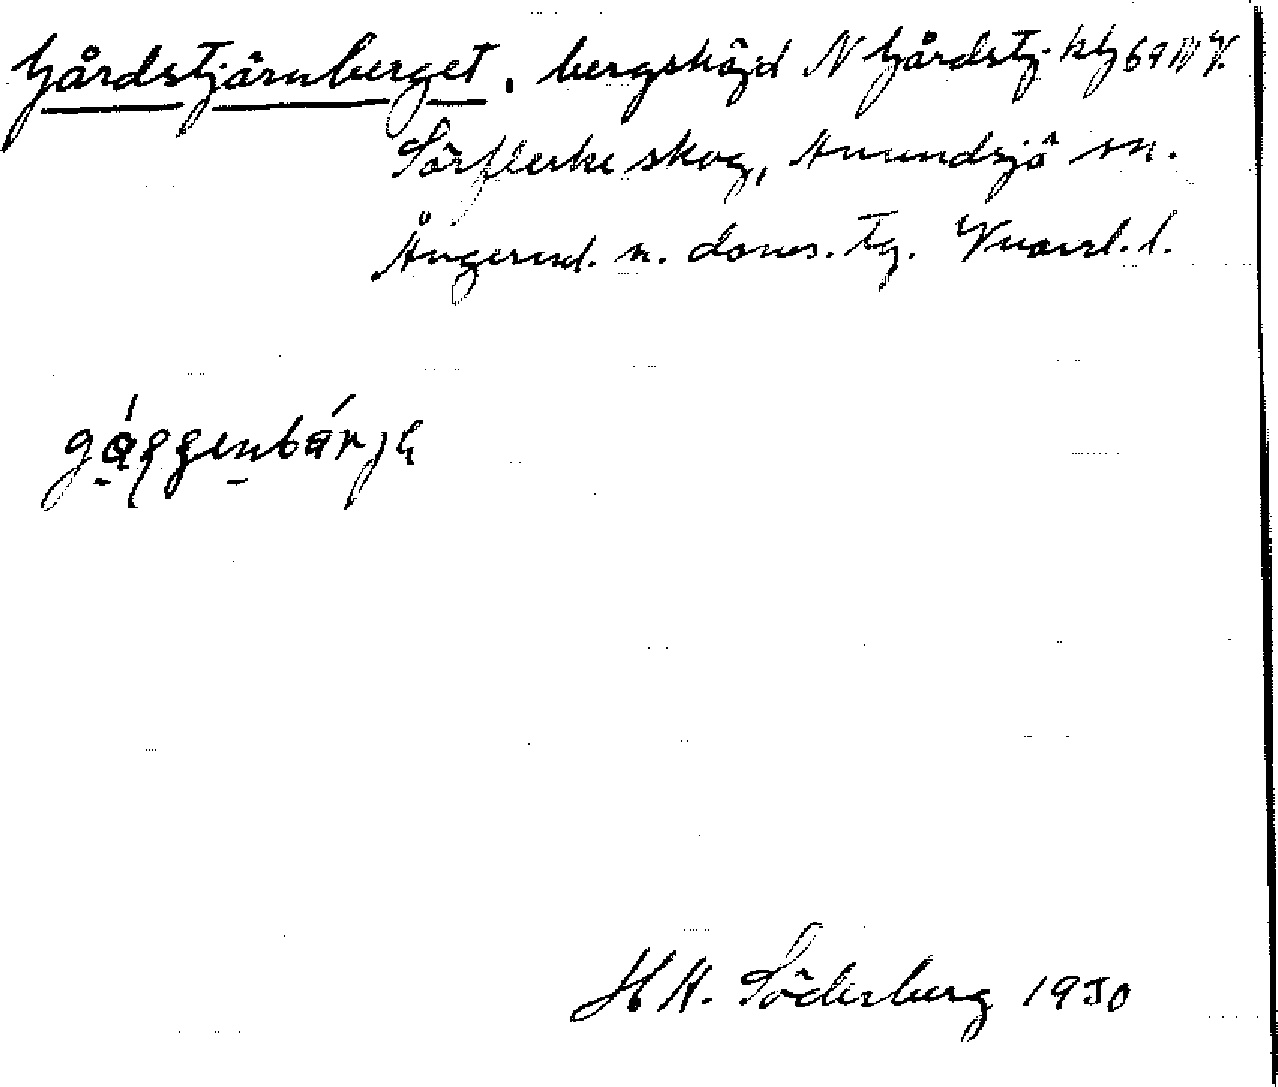 Gårdstjärnberget, bergshöjd N Gårdstj. kbl 69 NV.
Sörflerke skog, Anundsjö sn.
Ångerml. n. doms. Tg. Vnorrl. l.
H A. Söderberg 1930